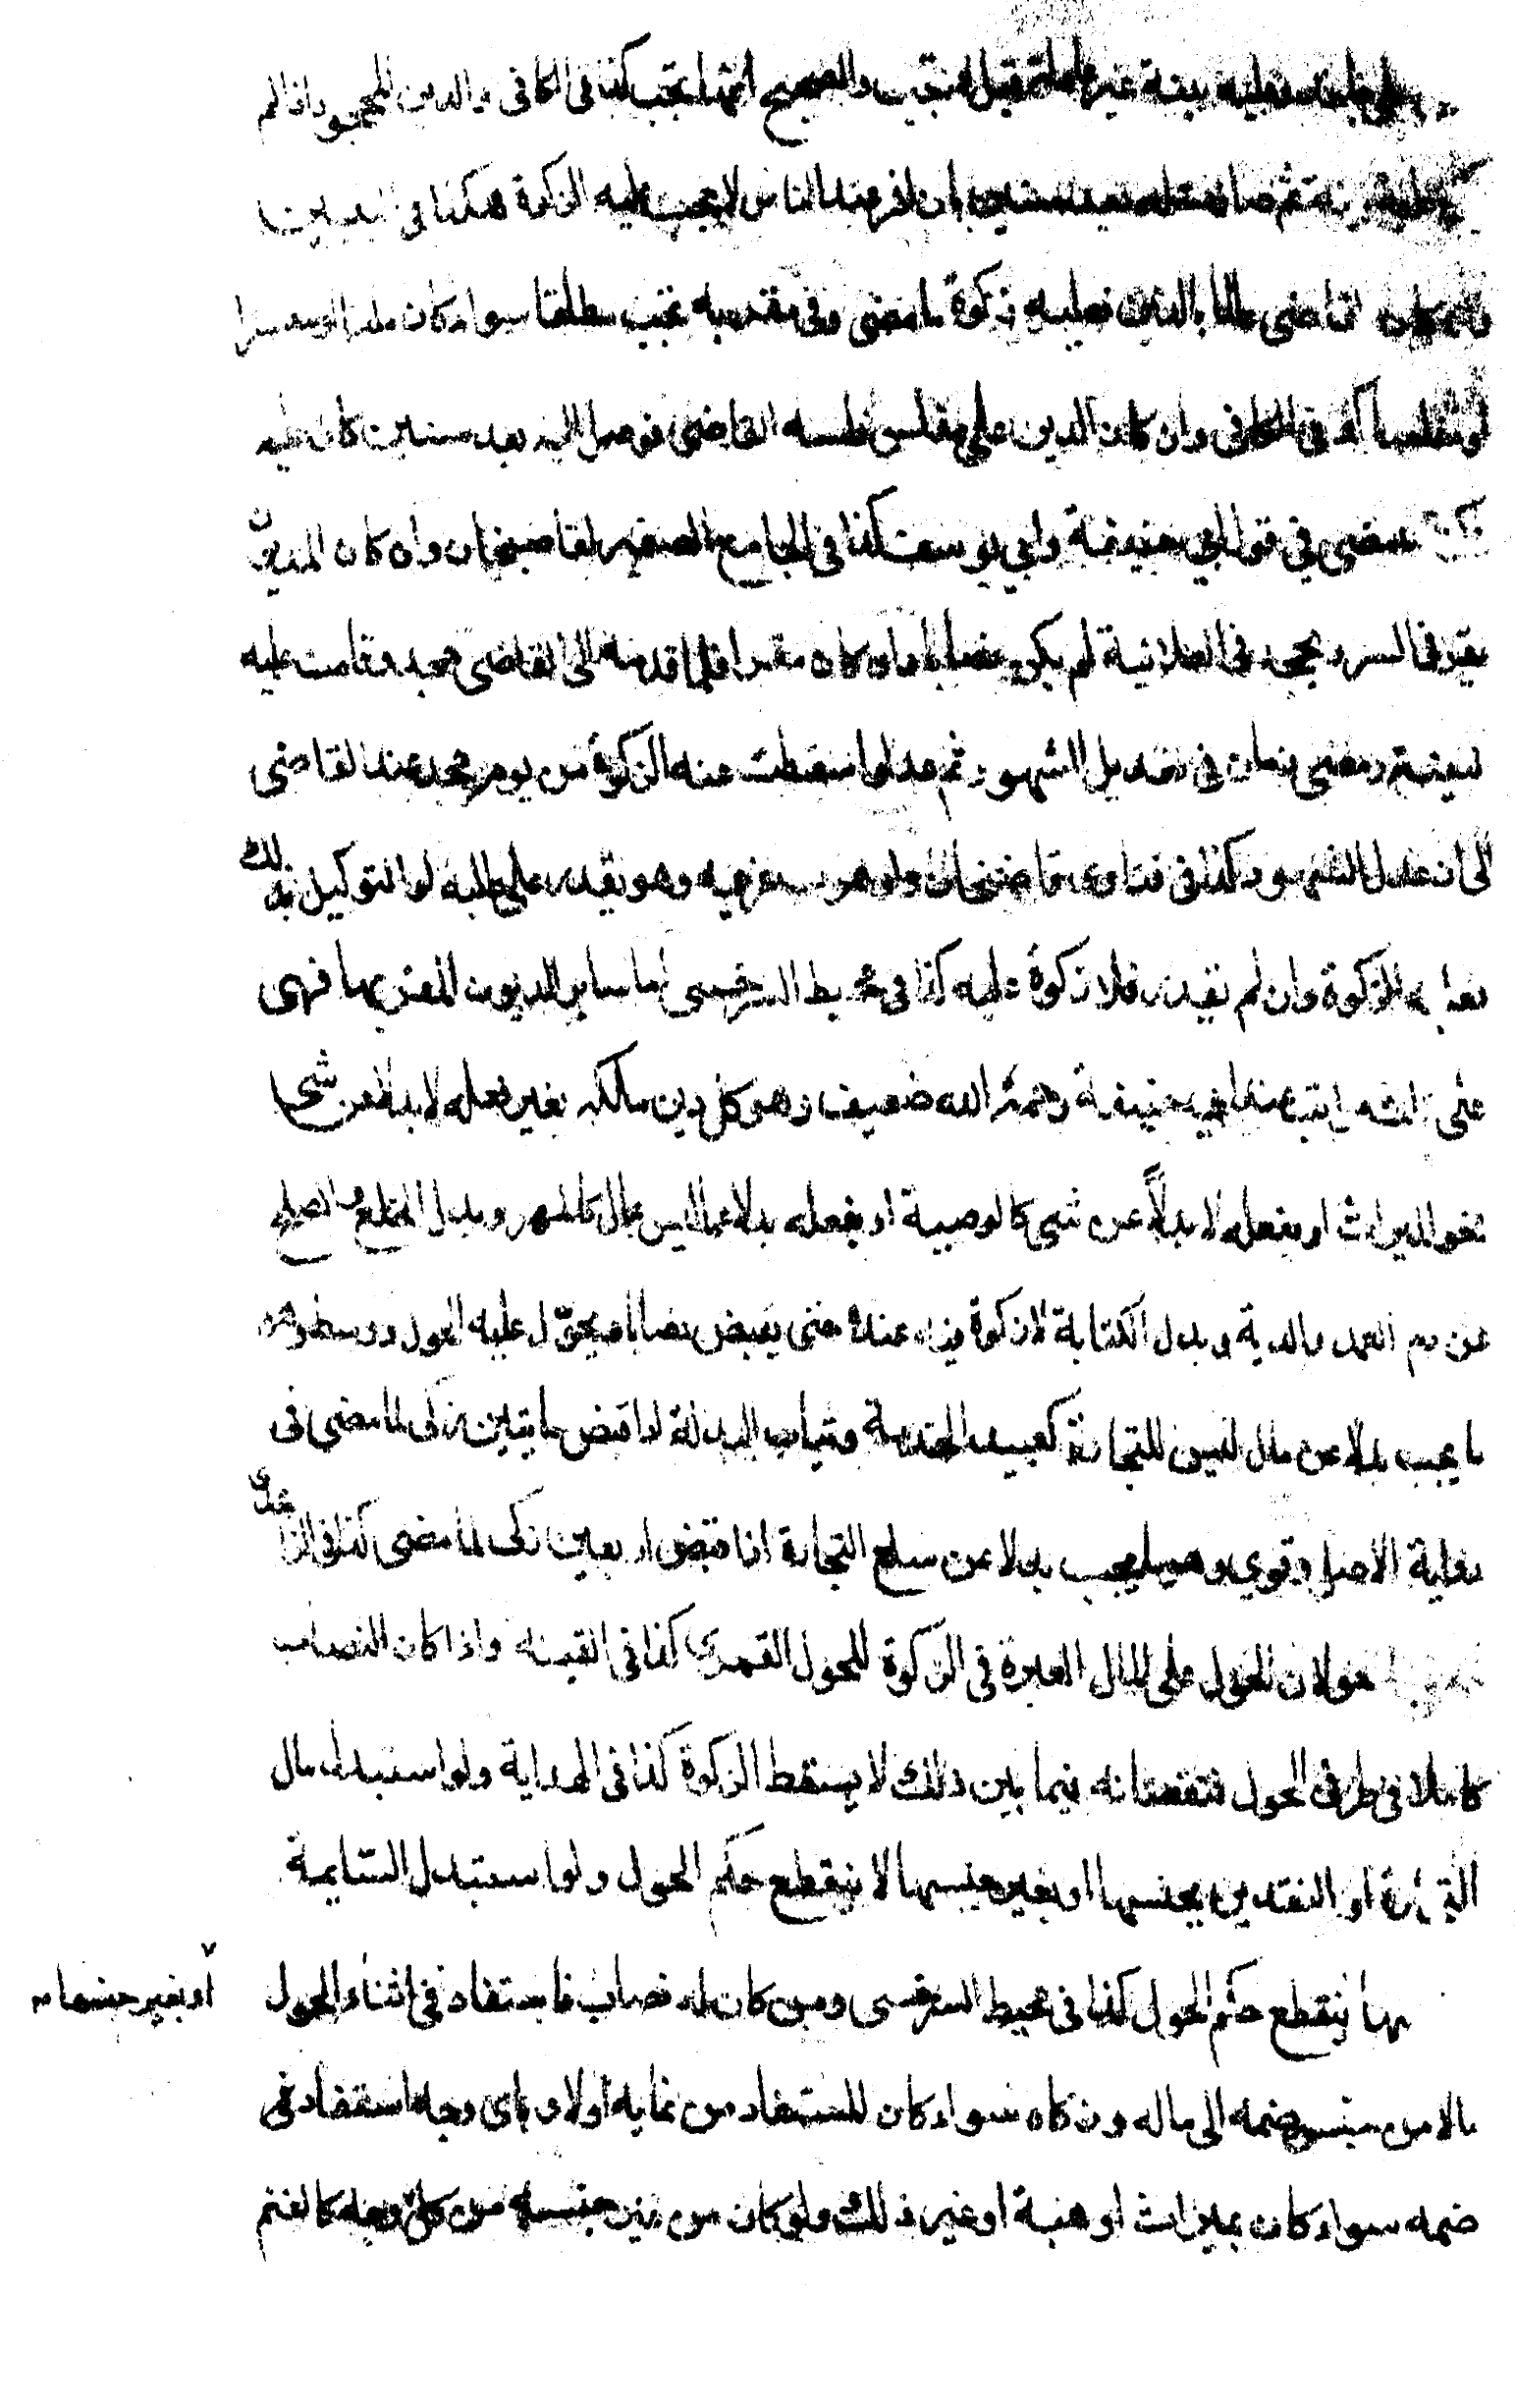 عليه بينة غير عادلة قيل لا تجب والصحيح انها تجب كذا فى الكافى والدين المجحود اذا لم
ثم صارت له بعد سنين بان اقر عند الناس لا يجب عليه الزكوة هكذا فى التبيين
القاضى عالما بالدين فعليه زكوة ما مضى وفى مقر به تجب مطلقا سواء كان مليا او معسرا
او مفلسا كذا فى الكافى وان كان الدين على مفلس فلسه القاضى فوصل اليه بعد سنين كان عليه
زكوة ما مضى فى قول ابى حنيفة وابى يوسف كذا فى الجامع الصغير لقاضيخان وان كان المديون
يقر فى السر ويجحد فى العلانية لم يكن نصابا وان كان مقرا فلما قدمه الى القاضى جحد وقامت عليه
بينة ومضى زمان فى تعديل الشهود ثم عدلوا سقطت عنه الزكوة من يوم جحد عند القاضى
الى ان عدل الشهود كذا فى فتاوى قاضيخان ولو هرب غريمه وهو يقدر على طلبه او التوكيل بذلك
فعليه الزكوة وان لم يقدر فلا زكوة عليه كذا فى محيط السرخسى اما ساير الديون المقر بها فهى
على ثلث مراتب عند ابى حنيفة رحمة الله ضعيف وهو كل دين ملكه بغير فعله لا بدلا عن شى
نحو الميراث او بفعله لا بدلاً عن شى كالوصية او بفعله بدلا عما ليس بمال كالمهر وبدل الخلع والصلح
عن دم العمد والدية وبدل الكتابة لا زكوة فيه عنده حتى يقبض نصابا ويحول عليه الحول ووسط وهو
ما يجب بدلا عن مال ليس للتجارة كعبيد الخدمة وثياب البذلة اذا قبض مايتين زكى لما مضى فى
رواية الاصل وقوي وهو ما يجب بدلا عن سلع التجارة اذا قبض اربعين زكى لما مضى كذا فى الزاهدى
حولان الحول على المال العبرة فى الزكوة للحول القمرى كذا فى القينه واذا كان النصاب
كاملا فى طرفى الحول فنقصانه فيما بين ذلك لا يسقط الزكوة كذا فى الهداية ولو استبدل مال
التجارة او النقدين بجنسها او بغير جنسها لا ينقطع حكم الحول ولو استبدل السايمة
بها ينقطع حكم الحول كذا فى محيط السرخسى ومن كان له نصاب فاستفاد فى اثناء الحول
او بغير جنسها
مالا من جنسه ضمه الى ماله وزكاه سواء كان المستفاد من نمايه اولا وباى وجه استفاد
ضمه سواء كان بميراث او هبة او غير ذلك ولو كان من غير جنسه من كل وجه كالغنم